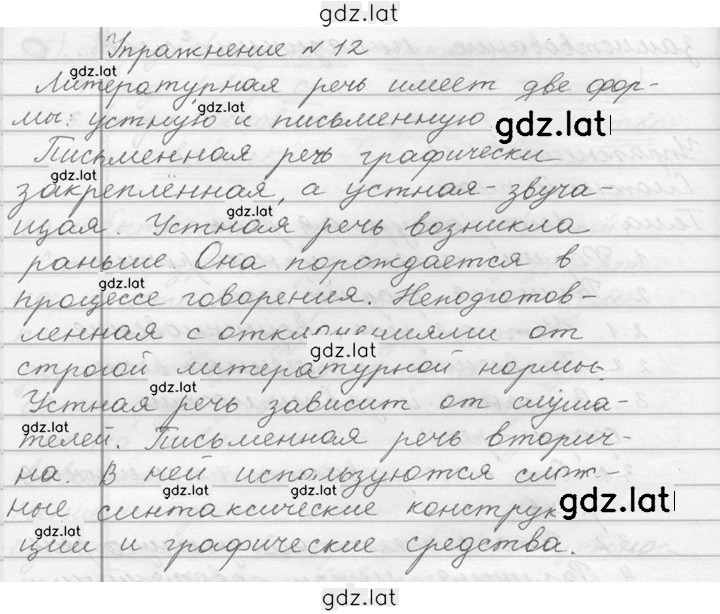 gdz.lat
Упражнение №12
gdz.lat
Литературная речь имеет две фор-
gdz.lat
мы: устную и письменную
gdz.lat
Письменная речь графически
gdz.lat
закреплённая, а устная - звуча-
gdz.lat
щая. Устная речь возникла
раньше. Она порождается в
gdz.lat
процессе говорения. Неподготов-
ленная с отклонениями от
gdz.lat
строгой литературной нормы.
gdz.lat
Устная речь зависит от слуша-
gdz.lat
телей. Письменная речь вторич-
на. В ней используются слож-
gdz.lat gdz.lat
gdz.lat
ные синтаксические конструк
ции и графические средства.
gdz.lat